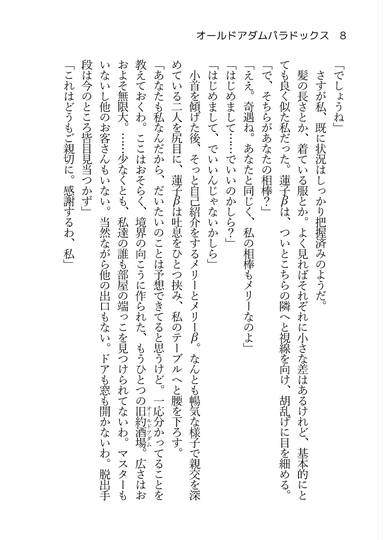 オールドアダムパラドックス 8
「でしょうね」
　さすが私、既に状況はしっかり把握済みのようだ。
　髪の長さとか、着ている服とか。よく見ればそれぞれに小さな差はあるけれど、基本的にと
ても良く似た私だった。蓮子βは、ついとこちらの隣へと視線を向け、胡乱げに目を細める。
「で、そちらがあなたの相棒？」
「ええ。奇遇ね。あなたと同じく、私の相棒もメリーなのよ」
「はじめまして……でいいのかしら？」
「はじめまして、でいいんじゃないかしら」
　小首を傾げた後、そっと自己紹介をするメリーとメリーβ。なんとも暢気な様子で親交を深
めている二人を尻目に、蓮子βは吐息をひとつ挟み、私のテーブルへと腰を下ろす。
「あなたも私なんだから、だいたいのことは予想できてると思うけど。一応分かってることを
教えておくわ。ここはおそらく、境界の向こうに作られた、もうひとつの旧約酒場。広さはお
オールドアダム
およそ無限大。……少なくとも、私達の誰も部屋の端っこを見つけられてないわ。マスターも
いないし他のお客さんもいない。当然ながら他の出口もない。ドアも窓も開かないわ。脱出手
段は今のところ皆目見当つかず」
「これはどうもご親切に。感謝するわ、私」